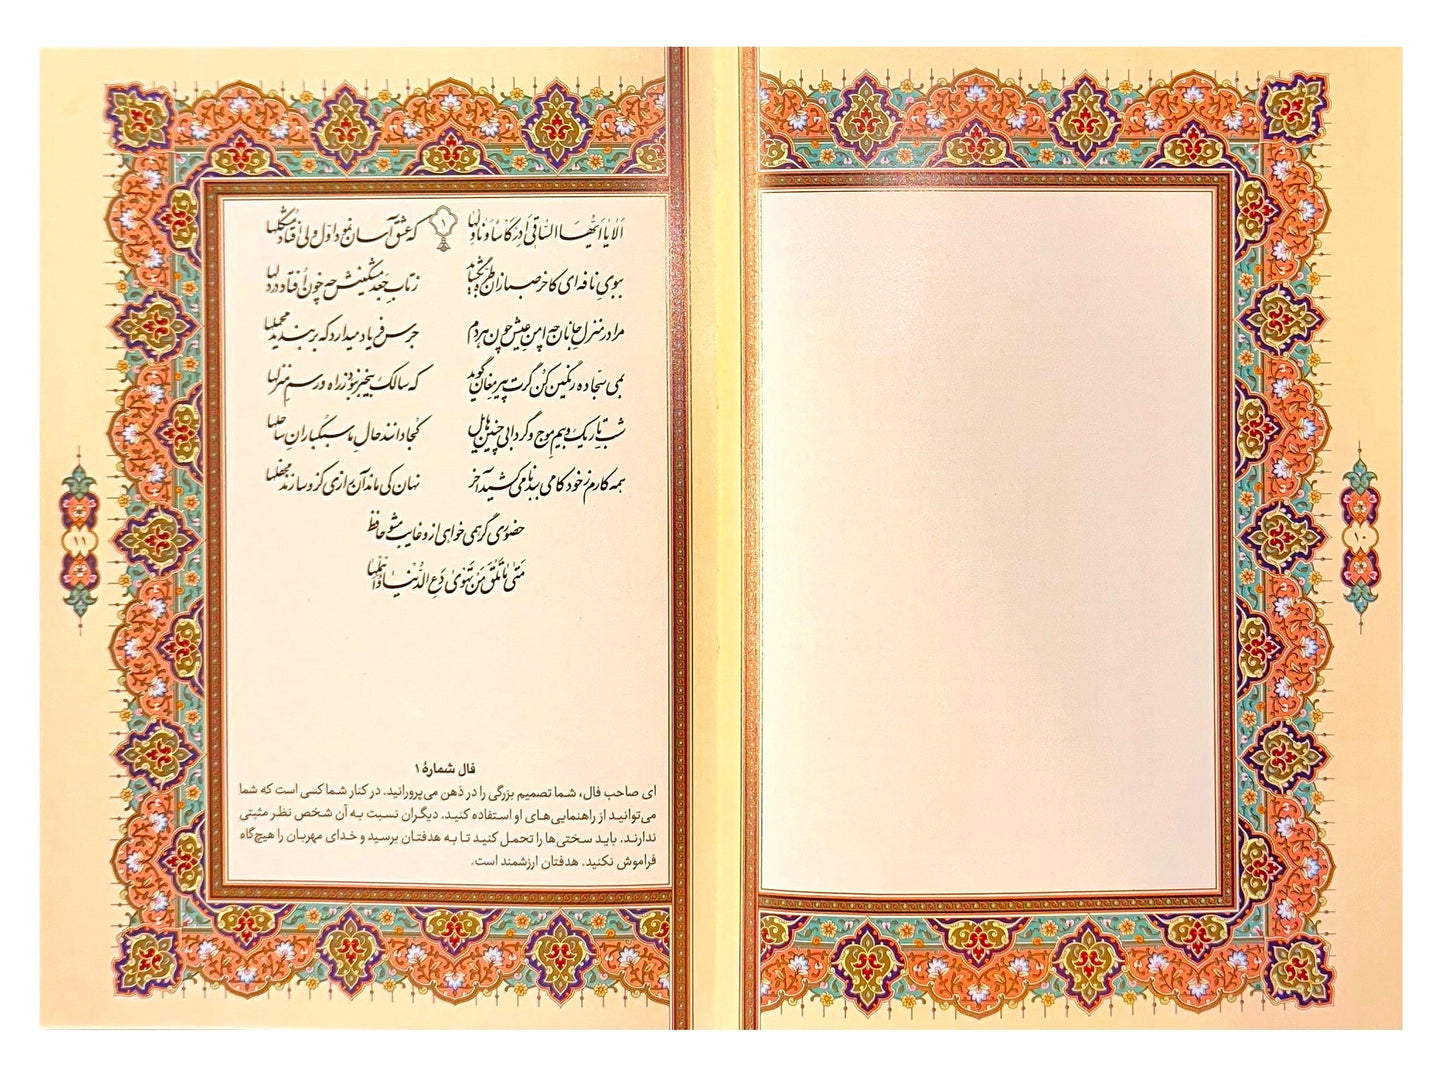 ۱۰
۱
اَلا یا اَیُّهَا السّاقی اَدِرْ کَاْساً وَ ناوِلْها
که عشق آسان نمود اوّل ولی افتاد مشکلها
ببویِ نافه‌ای کاخر صبا زان طرّه بگشاید
ز تابِ جَعدِ مشکینش چه خون افتاد در دلها
مرا در منزل جانان چه امنِ عیش چون هردم
جرس فریاد میدارد که بربندید محملها
بمی سجّاده رنگین کن گرت پیر مغان گوید
که سالک بیخبر نبود ز راه و رسم منزلها
شب تاریک و بیم موج و گردابی چنین هایل
کجا دانند حالِ ما سبکبارانِ ساحلها
همه کارم ز خود کامی ببدنامی کشید آخر
نهان کی ماند آن رازی کزو سازند محفلها
حضوری گر همی خواهی ازو غایب مشو حافظ
مَتی ما تَلْقَ مَنْ تَهْوی دَعِ الدُّنیا وَ اَهْمِلْها
فال شمارهٔ ۱
ای صاحب فال، شما تصمیم بزرگی را در ذهن می‌پرورانید. در کنار شما کسی است که شما
می‌توانید از راهنمایی‌های او استفاده کنید. دیگران نسبت به آن شخص نظر مثبتی
ندارند. باید سختی‌ها را تحمل کنید تا به هدفتان برسید و خدای مهربان را هیچ‌گاه
فراموش نکنید. هدفتان ارزشمند است.
۱۱